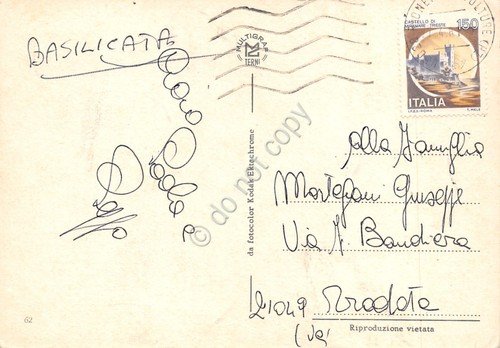 BASILICATA
Paola e
MULTIGRAF
TERNI
da fotocolor Kodak Ektachrome
© do not copy
CASTELLO DI
MIRAMARE - TRIESTE
150
ITALIA
I.P.Z.S. - ROMA
Alla Famiglia
Giuseppe
Via F. Bandiera
21049 Tradate
(Va)
Riproduzione vietata
62